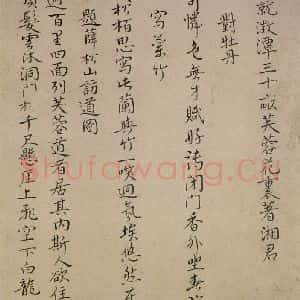 就澂潭三十畝芙蓉
裏著湘君
對牡丹
可憐色無才賦好詩閉門香外坐春
寫蘭竹
松栢思寫出蘭與竹一啸過氛埃悠然
題薛松山訪道圖
近百里四面列芙蓉道者居其内斯人欲住
髮雲沐洞門水千尺懸崖上飛空下白龍
Shufawang.cn